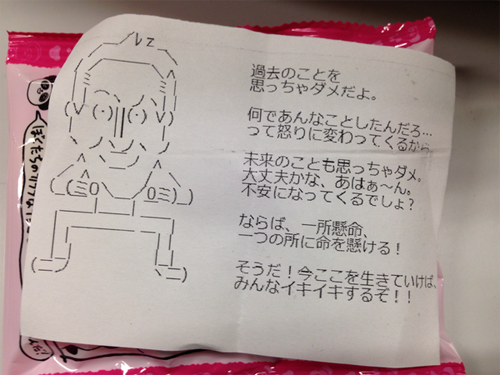 過去のことを
思っちゃダメだよ。
何であんなことしたんだろ…
って怒りに変わってくるから。
未来のことも思っちゃダメ。
大丈夫かな、あはぁ〜ん。
不安になってくるでしょ?
ならば、一所懸命、
一つの所に命を懸ける!
そうだ!今ここを生きていけば、
みんなイキイキするぞ!!